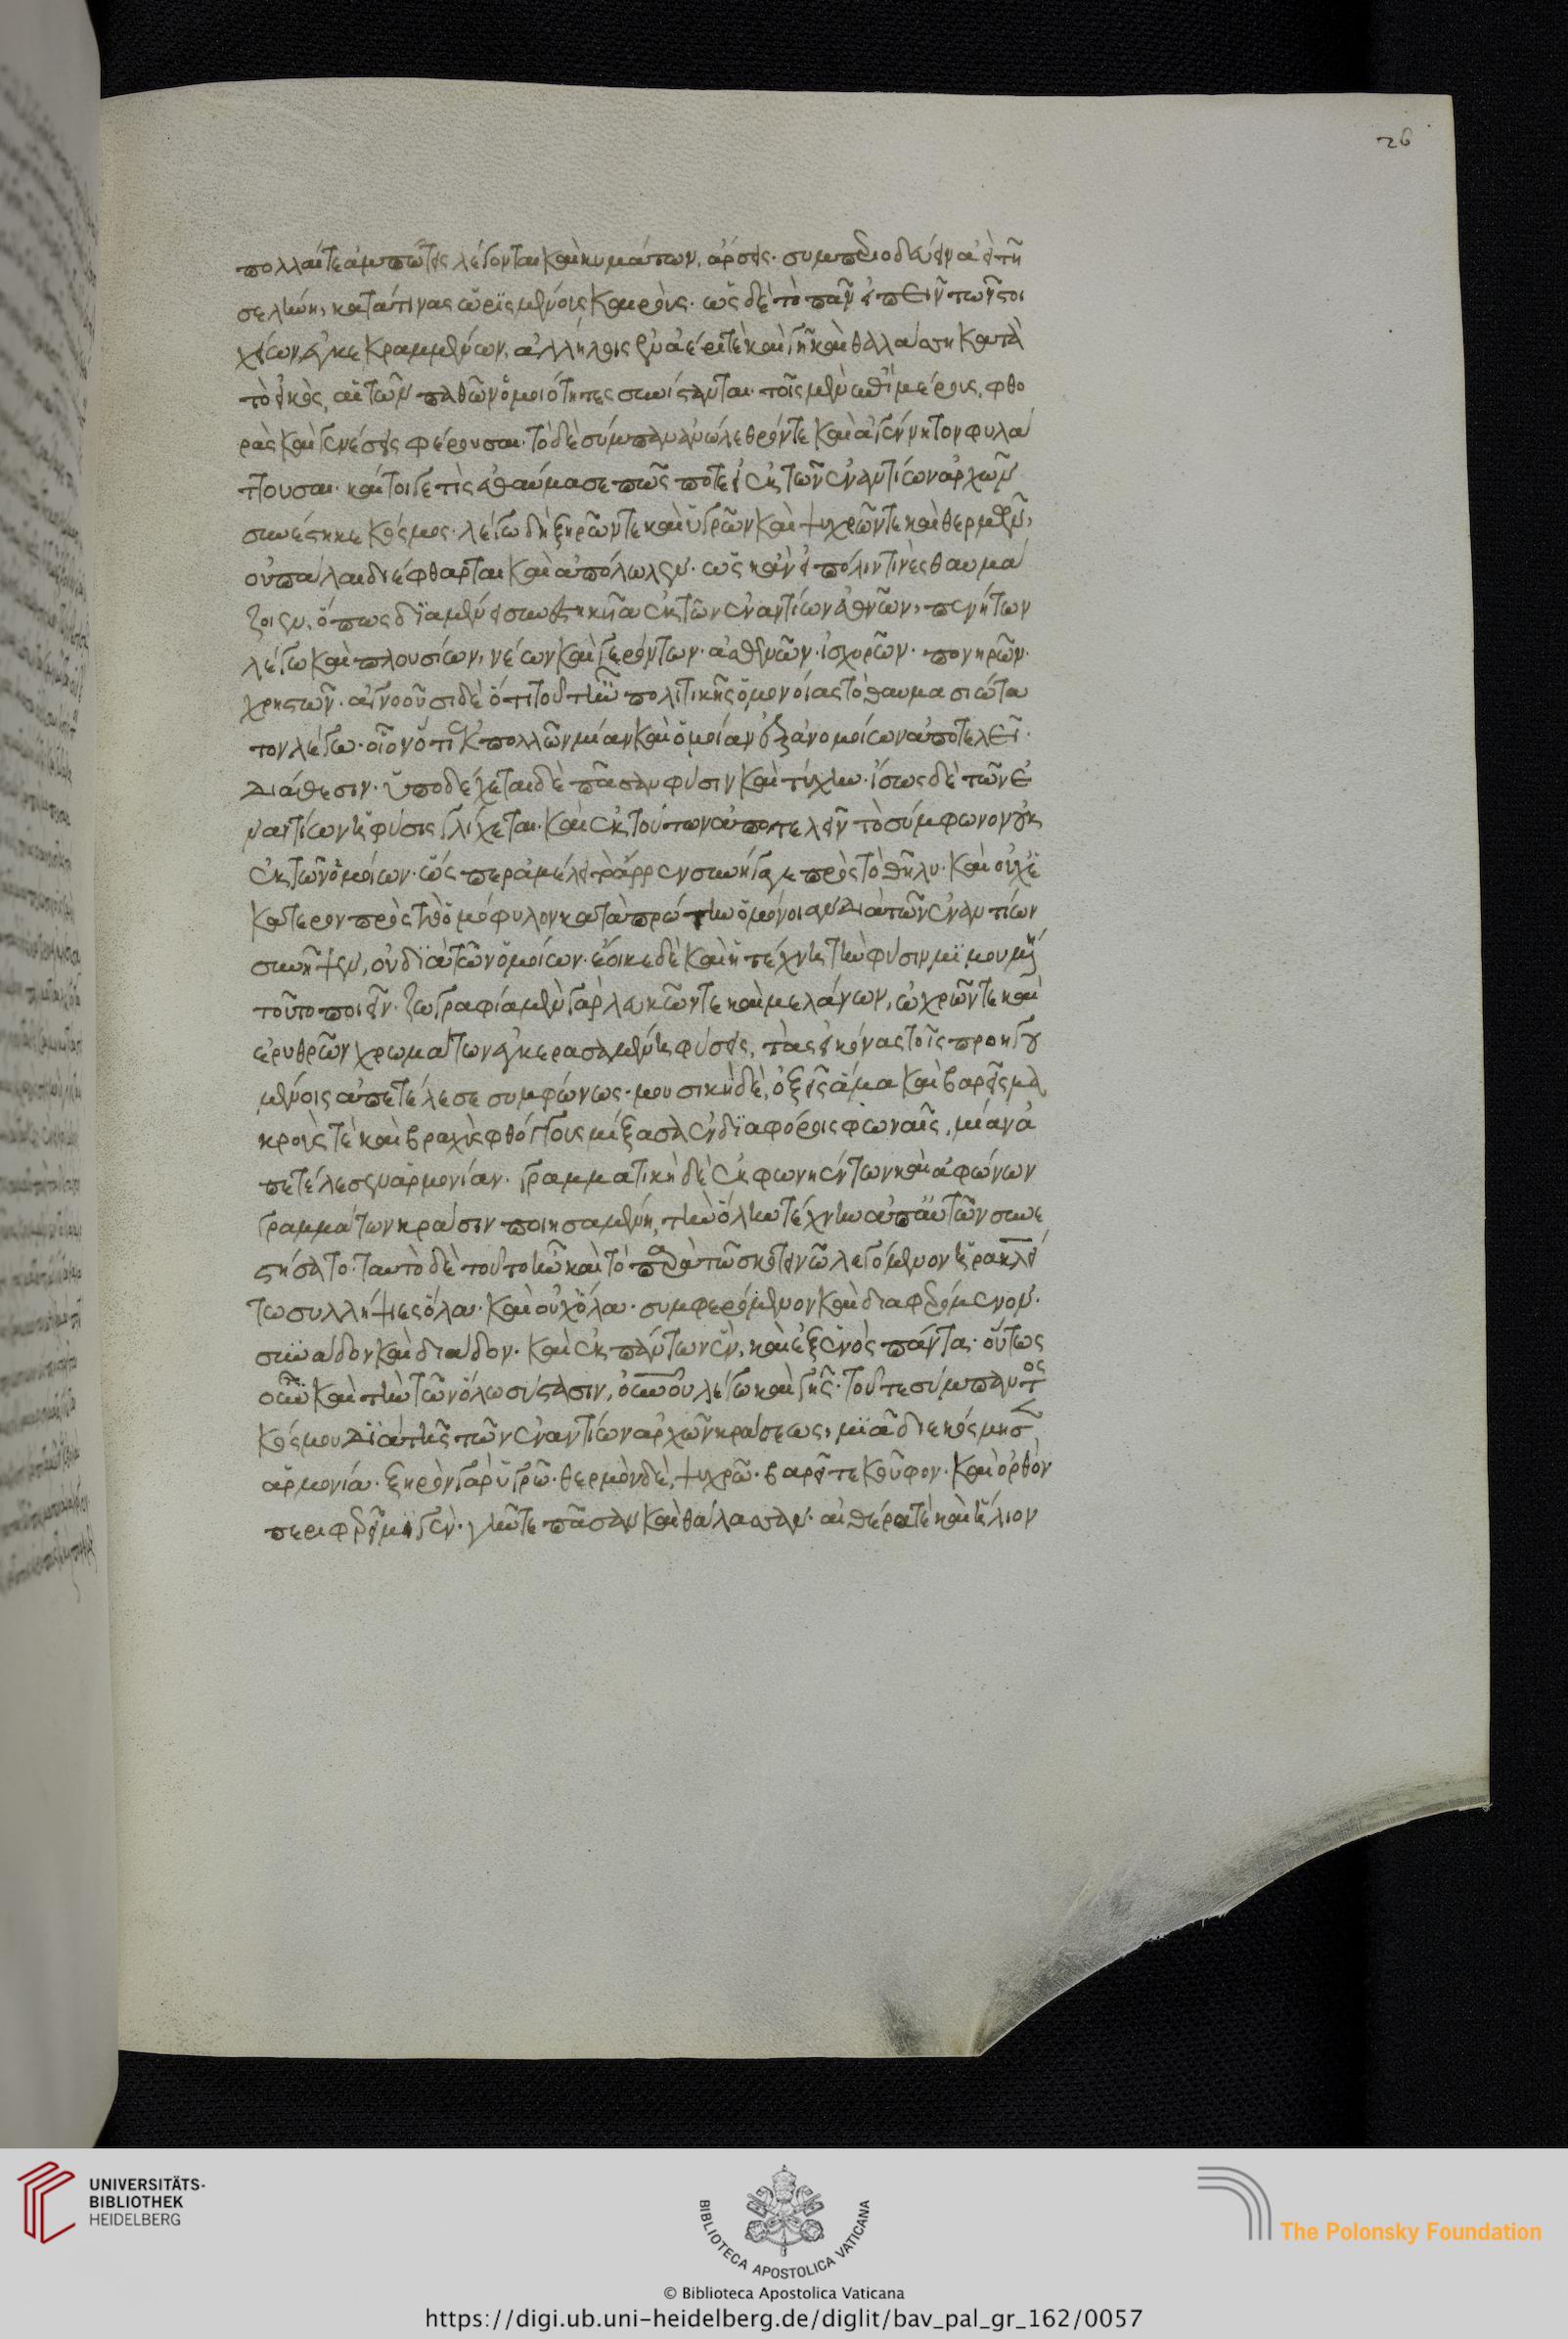 26
πολλαί τε ἀμπώτεις λέγονται καὶ κυμάτων ἄρσεις· συμπεριοδεύειν ἀεὶ τῇ
σελήνῃ, κατά τινας ὡρισμένους καιρούς· ὡς δὲ τὸ πᾶν εἰπεῖν τῶν στοι
χείων ἐγκεκραμμένων ἀλλήλοις ἐν ἀέρι τὲ καὶ γῇ καὶ θαλάσσῃ κατὰ
τὸ εἰκὸς, αἱ τῶν παθῶν ὁμοιότητες συνίστανται· τοῖς μὲν ἐπὶ μέρους, φθο
ρὰς καὶ γενέσεις φέρουσαι· τὸ δὲ σύμπαν ἀνώλεθρόν τε καὶ ἀγέννητον φυλά
ττουσαι· καίτοι γέ τις ἐθαύμασε πῶς ποτὲ εἰ ἐκ τῶν ἐναντίων ἀρχῶν
συνέστηκε κόσμος· λέγω δὴ ξηρῶν τε καὶ ὑγρῶν καὶ ψυχρῶν τε καὶ θερμῶν,
οὐ πάλαι διέφθαρται καὶ ἀπόλωλεν· ὡς κἂν εἰ πόλιν τινὲς θαυμά
ζοιεν, ὅπως διαμένει συνεστηκυῖα ἐκ τῶν ἐναντίων ἐθνῶν, πενήτων
λέγω καὶ πλουσίων, νέων καὶ γερόντων· ἀσθενῶν· ἰσχυρῶν· πονηρῶν·
χρηστῶν· ἀγνοοῦσι δὲ ὅτι τοῦτ' ἦν πολιτικῆς ὁμονοίας τὸ θαυμασιώτα
τον λέγω· οἷον ὅτι ἐκ πολλῶν μίαν καὶ ὁμοίαν ἐξ ἀνομοίων ἀποτελεῖ·
διάθεσιν· ὑποδέχεται δὲ πᾶσαν φύσιν καὶ τύχην· ἴσως δὲ τῶν ἐ
ναντίων ἡ φύσις γλίχεται· καὶ ἐκ τούτων ἀποτελεῖν τὸ σύμφωνον οὐκ
ἐκ τῶν ὁμοίων· ὥσπερ ἀμέλει τὸ ἄρρεν συνήγαγε πρὸς τὸ θῆλυ· καὶ οὐχ ἑ
κάτερον πρὸς τὸ ὁμόφυλον καὶ τὰ πρώτην ὁμόνοιαν διὰ τῶν ἐναντίων
συνῆψεν, οὐ διὰ τῶν ὁμοίων· ἔοικε δὲ καὶ ἡ τέχνη τὴν φύσιν μιμουμένη
τοῦτο ποιεῖν· ζωγραφία μὲν γὰρ λευκῶν τε καὶ μελάνων, ὠχρῶν τε καὶ
ἐρυθρῶν χρωμάτων ἐγκερασαμένη φύσεις, τὰς εἰκόνας τοῖς προηγου
μένοις ἀπετέλεσε συμφώνως· μουσικὴ δὲ, ὀξεῖς ἅμα καὶ βαρεῖς μα
κρούς τὲ καὶ βραχεῖς φθόγγους μίξασα ἐν διαφόροις φωναῖς, μίαν ἀ
πετέλεσεν ἁρμονίαν· γραμματικὴ δὲ ἐκ φωνηέντων καὶ ἀφώνων
γραμμάτων κράσιν ποιησαμένη, τὴν ὅλην τέχνην ἀπ' αὐτῶν συνε
στήσατο· ταὐτὸ δὲ τοῦτο ἦν καὶ τὸ παρὰ τῷ σκοτεινῷ λεγόμενον ἡρακλεί
τω συλλήψιες ὅλα· καὶ οὐχ ὅλα· συμφερόμενον καὶ διαφερόμενον·
συνάδον καὶ διάδον· καὶ ἐκ πάντων ἕν, καὶ ἐξ ἑνὸς πάντα· οὕτως
οὖν καὶ τὴν τῶν ὅλων σύστασιν, οὐνοῦ λέγω καὶ γῆς· τοῦ τε σύμπαντος
κόσμου διὰ τῆς τῶν ἐναντίων ἀρχῶν κράσεως, μία διεκόσμησ
ἁρμονία· ξηρὸν γὰρ ὑγρῶ· θερμὸν δὲ, ψυχρῶ· βαρεῖ τε κοῦφον· καὶ ὀρθὸν
περιφερεῖ μιγέν· γῆν τε πᾶσαν καὶ θάλασσαν· αἰθέρα τὲ καὶ ἥλιον
UNIVERSITÄTS-
BIBLIOTHEK
HEIDELBERG
BIBLIOTECA APOSTOLICA VATICANA
The Polonsky Foundation
© Biblioteca Apostolica Vaticana
https://digi.ub.uni-heidelberg.de/diglit/bav_pal_gr_162/0057